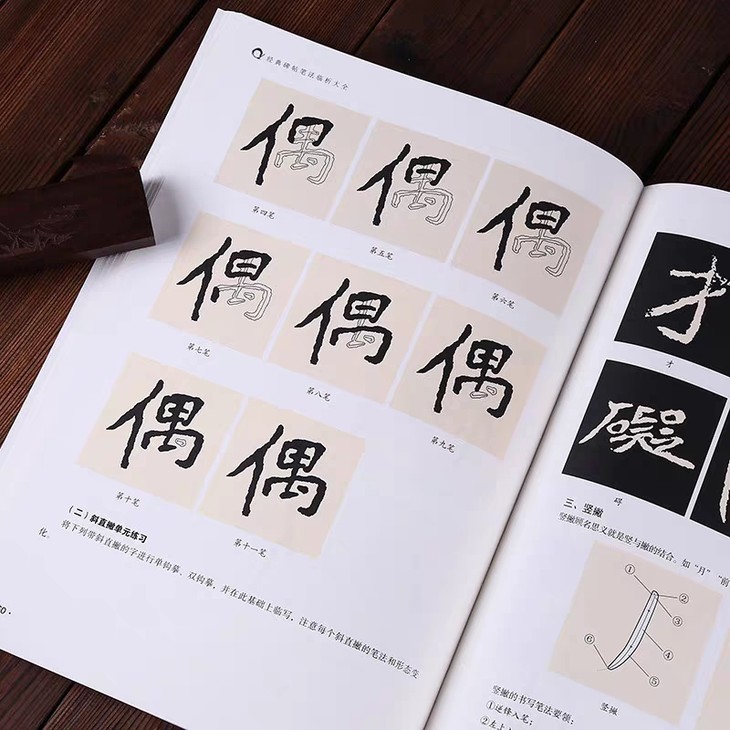 经典碑帖笔法临析大全
偶 偶 偶
第四笔 第五笔 第六笔
偶 偶 偶
第七笔 第八笔 第九笔
偶 偶
第十笔 第十一笔
（二）斜直撇单元练习
将下列带斜直撇的字进行单钩摹、双钩摹，并在此基础上临写，注意每个斜直撇的笔法和形态变
化。
才
才
礙
碍
三、竖撇
竖撇顾名思义就是竖与撇的结合。如“月”“前
①
②
③
④
⑤
⑥
竖撇
竖撇的书写笔法要领：
①逆锋入笔；
②左上